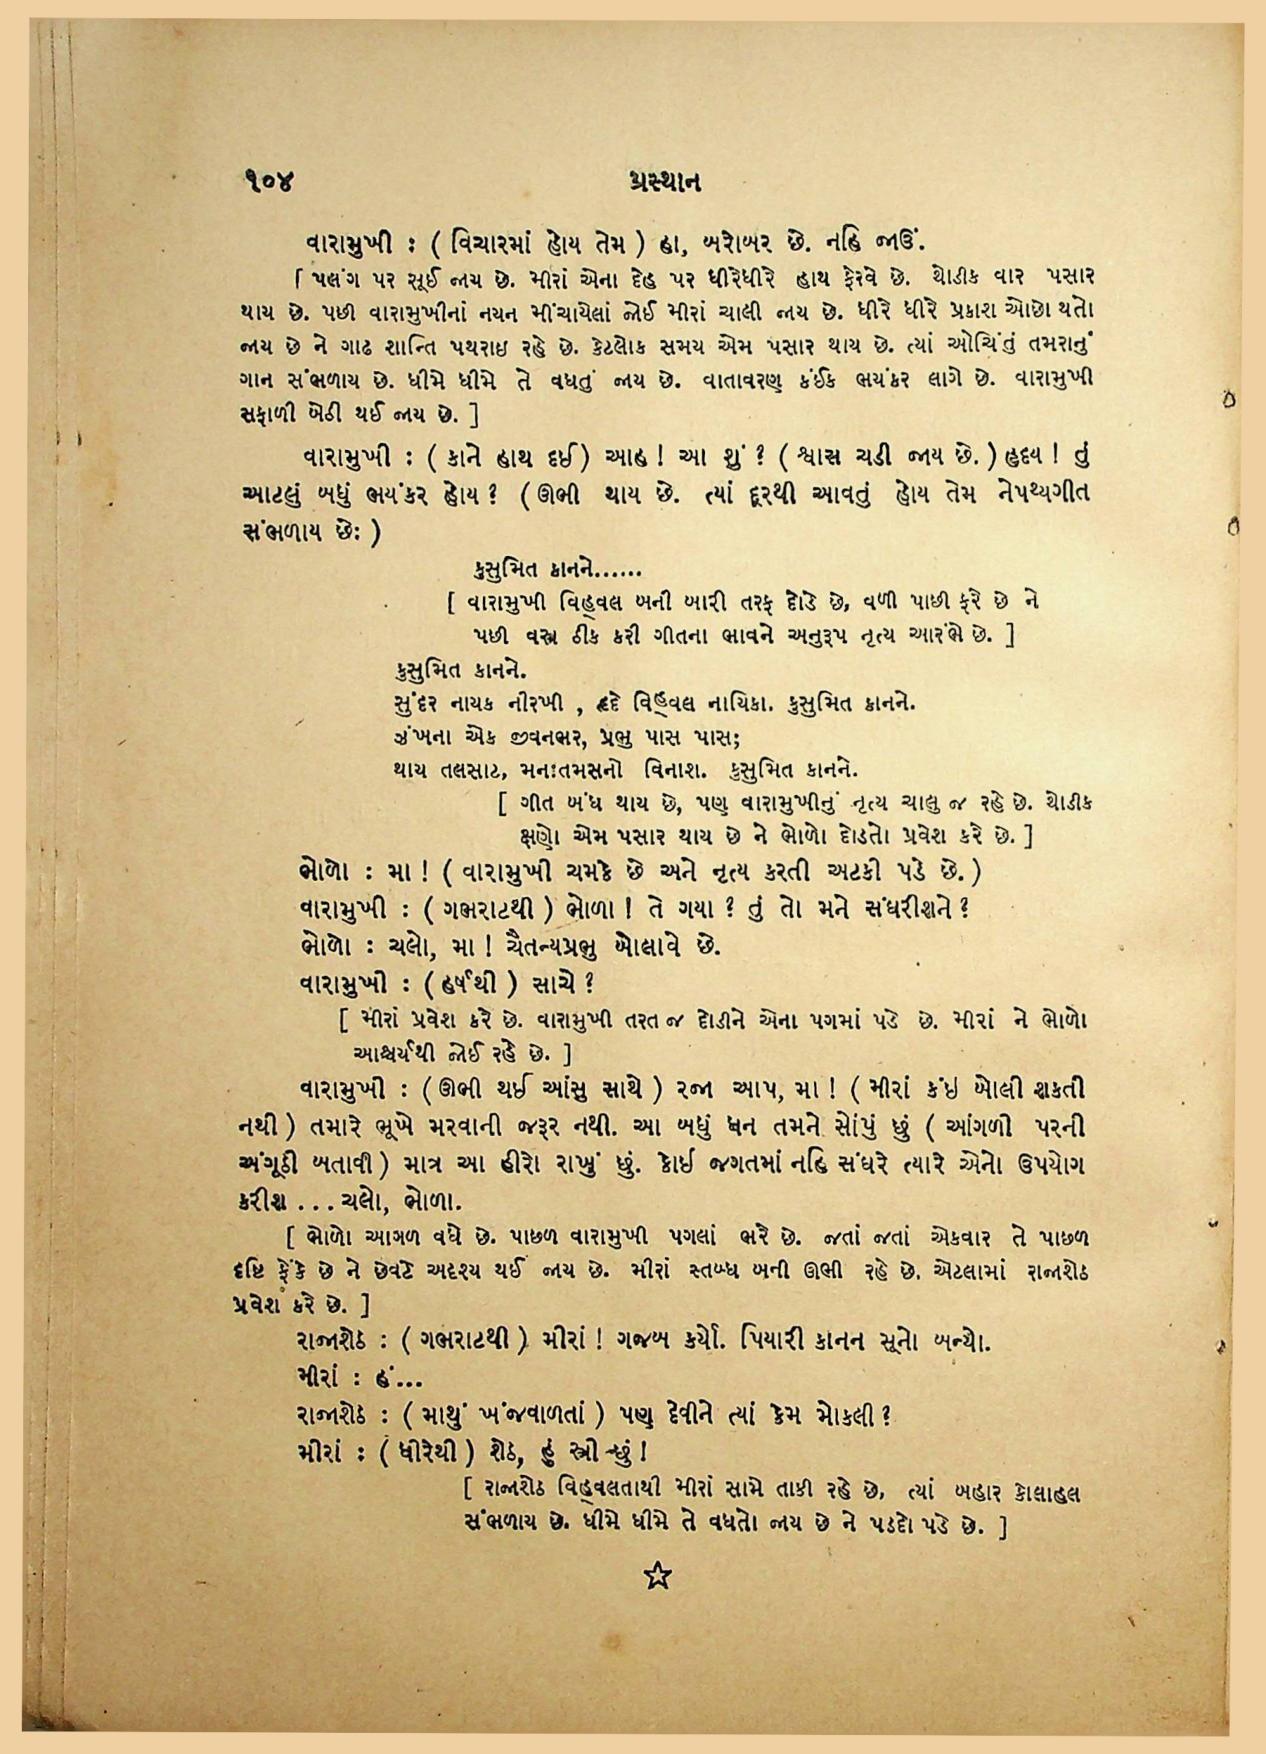 ૧૦૪ પ્રસ્થાન
વારામુખી : ( વિચારમાં હોય તેમ ) હા, બરોબર છે. નહિ જાઉં.
[ પલંગ પર સૂઈ જાય છે. મીરાં એના દેહ પર ધીરેધીરે હાથ ફેરવે છે. થોડીક વાર પસાર
થાય છે. પછી વારામુખીનાં નયન મીંચાયેલાં જોઈ મીરાં ચાલી જાય છે. ધીરે ધીરે પ્રકાશ ઓછો થતો
જાય છે ને ગાઢ શાન્તિ પથરાઇ રહે છે. કેટલોક સમય એમ પસાર થાય છે. ત્યાં ઓચિંતું તમરાનું
ગાન સંભળાય છે. ધીમે ધીમે તે વધતું જાય છે. વાતાવરણ કંઈક ભયંકર લાગે છે. વારામુખી
સફાળી બેઠી થઈ જાય છે. ]
વારામુખી : ( કાને હાથ દઈ) આહ ! આ શું ? ( શ્વાસ ચડી જાય છે. ) હૃદય ! તું
આટલું બધું ભયંકર હોય ? ( ઊભી થાય છે. ત્યાં દૂરથી આવતું હોય તેમ નેપથ્યગીત
સંભળાય છેઃ )
કુસુમિત કાનને......
[ વારામુખી વિહ્વલ બની બારી તરફ દોડે છે, વળી પાછી ફરે છે ને
પછી વસ્ત્ર ઠીક કરી ગીતના ભાવને અનુરૂપ નૃત્ય આરંભે છે. ]
કુસુમિત કાનને.
સુંદર નાયક નીરખી , હૃદે વિહ્વલ નાયિકા. કુસુમિત કાનને.
ઝંખના એક જીવનભર, પ્રભુ પાસ પાસ;
થાય તલસાટ, મનઃતમસનો વિનાશ. કુસુમિત કાનને.
[ ગીત બંધ થાય છે, પણ વારામુખીનું નૃત્ય ચાલુ જ રહે છે. થોડીક
ક્ષણો એમ પસાર થાય છે ને ભોળો દોડતો પ્રવેશ કરે છે. ]
ભોળો : મા ! ( વારામુખી ચમકે છે અને નૃત્ય કરતી અટકી પડે છે. )
વારામુખી : ( ગભરાટથી ) ભોળા ! તે ગયા ? તું તો મને સંઘરીશને ?
ભોળો : ચલો, મા ! ચૈતન્યપ્રભુ બોલાવે છે.
વારામુખી : ( હર્ષથી ) સાચે ?
[ મીરાં પ્રવેશ કરે છે. વારામુખી તરત જ દોડીને એના પગમાં પડે છે. મીરાં ને ભોળો
આશ્ચર્યથી જોઈ રહે છે. ]
વારામુખી : ( ઊભી થઈ આંસુ સાથે ) રજા આપ, મા ! ( મીરાં કંઇ બોલી શકતી
નથી ) તમારે ભૂખે મરવાની જરૂર નથી. આ બધું ધન તમને સોંપું છું ( આંગળી પરની
અંગૂઠી બતાવી ) માત્ર આ હીરો રાખું છું. કોઇ જગતમાં નહિ સંઘરે ત્યારે એનો ઉપયોગ
કરીશ ... ચલો, ભોળા.
[ ભોળો આગળ વધે છે. પાછળ વારામુખી પગલાં ભરે છે. જતાં જતાં એકવાર તે પાછળ
દૃષ્ટિ ફેંકે છે ને છેવટે અદૃશ્ય થઈ જાય છે. મીરાં સ્તબ્ધ બની ઊભી રહે છે. એટલામાં રાજાશેઠ
પ્રવેશ કરે છે. ]
રાજાશેઠ : ( ગભરાટથી ) મીરાં ! ગજબ કર્યો. પિયારી કાનન સૂનો બન્યો.
મીરાં : હં...
રાજાશેઠ : ( માથું ખંજવાળતાં ) પણ દેવીને ત્યાં કેમ મોકલી ?
મીરાં : ( ધીરેથી ) શેઠ, હું સ્ત્રી છું !
[ રાજાશેઠ વિહ્વલતાથી મીરાં સામે તાકી રહે છે, ત્યાં બહાર કોલાહલ
સંભળાય છે. ધીમે ધીમે તે વધતો જાય છે ને પડદો પડે છે. ]